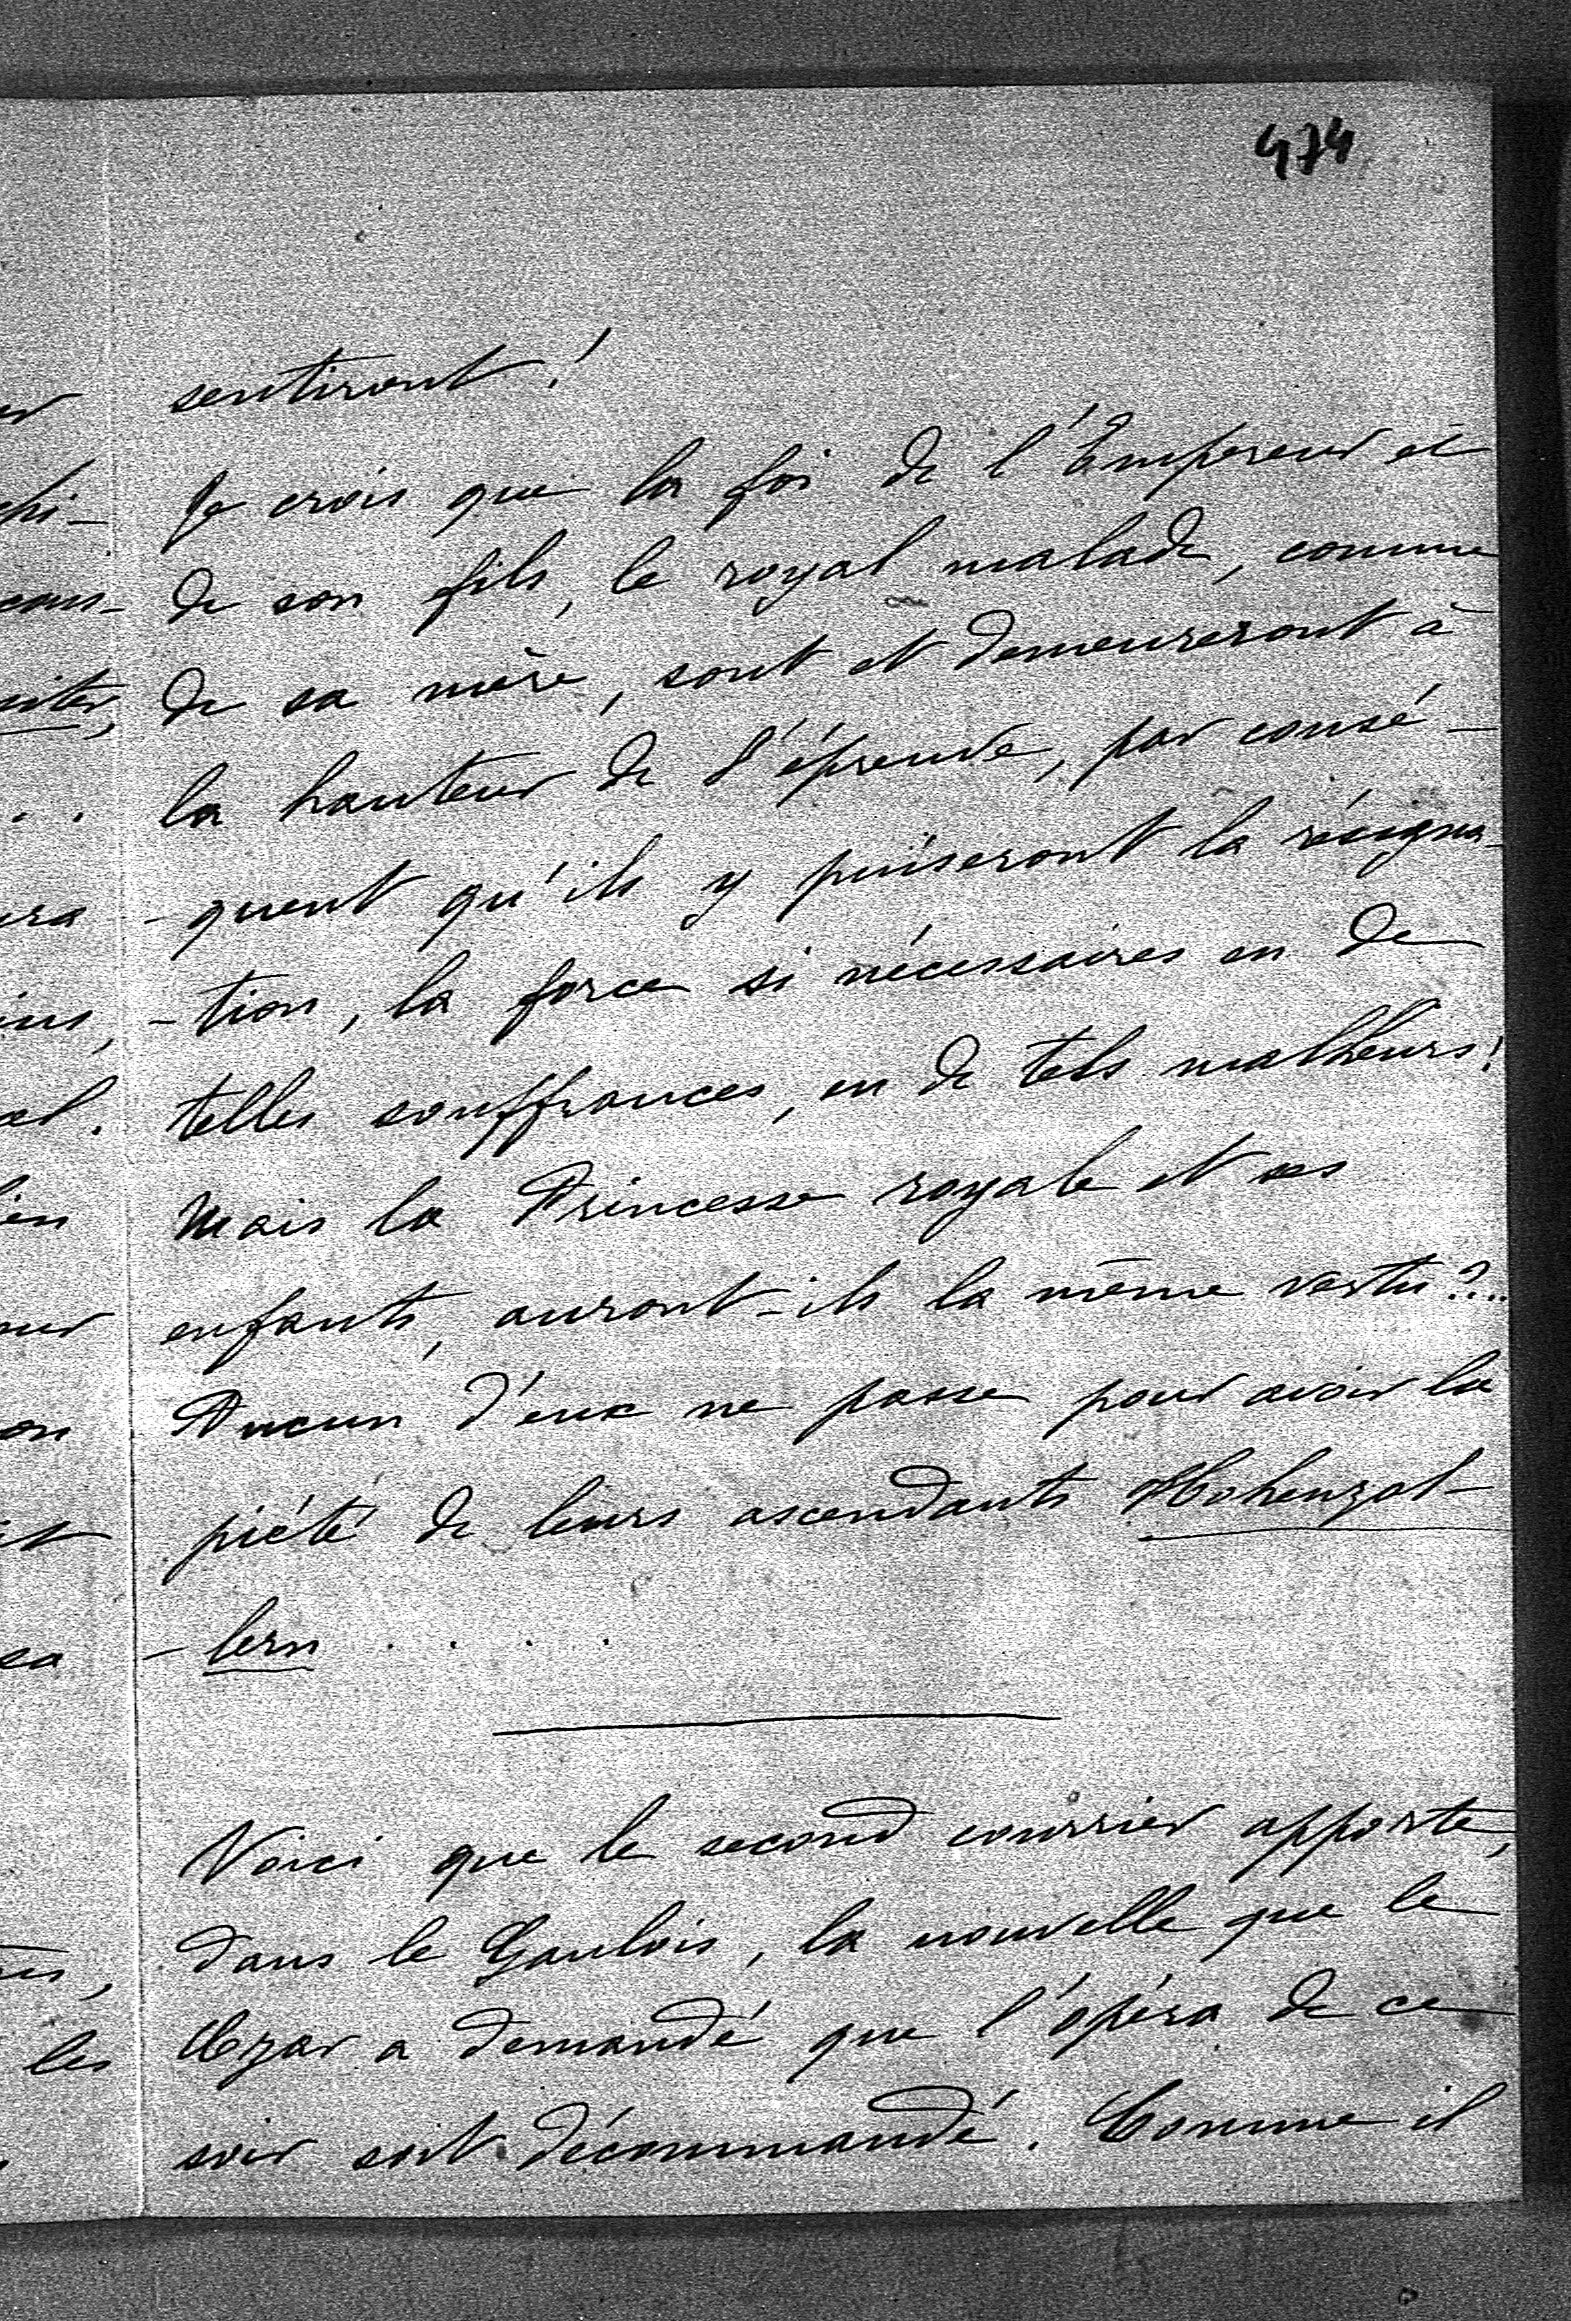 474
sentiront !
Je crois que la foi de l'Empereur et
de son fils, le royal malade, comme
de sa mère, sont et demeureront à
la hauteur de l'épreuve, par consé-
-quent qu'ils y puiseront la résigna-
-tion, la force si nécessaires en de
telles souffrances, en de tels malheurs !
Mais la Princesse royale et ses
enfants, auront-ils la même vertu ?...
Aucun d'eux ne passe pour avoir la
piété de leurs ascendants Hohenzol-
-lern . . . . .
Voici que le second courrier apporte,
dans le Gaulois, la nouvelle que le
Czar a demandé que l'opéra de ce
soir soit décommandé. Comme il